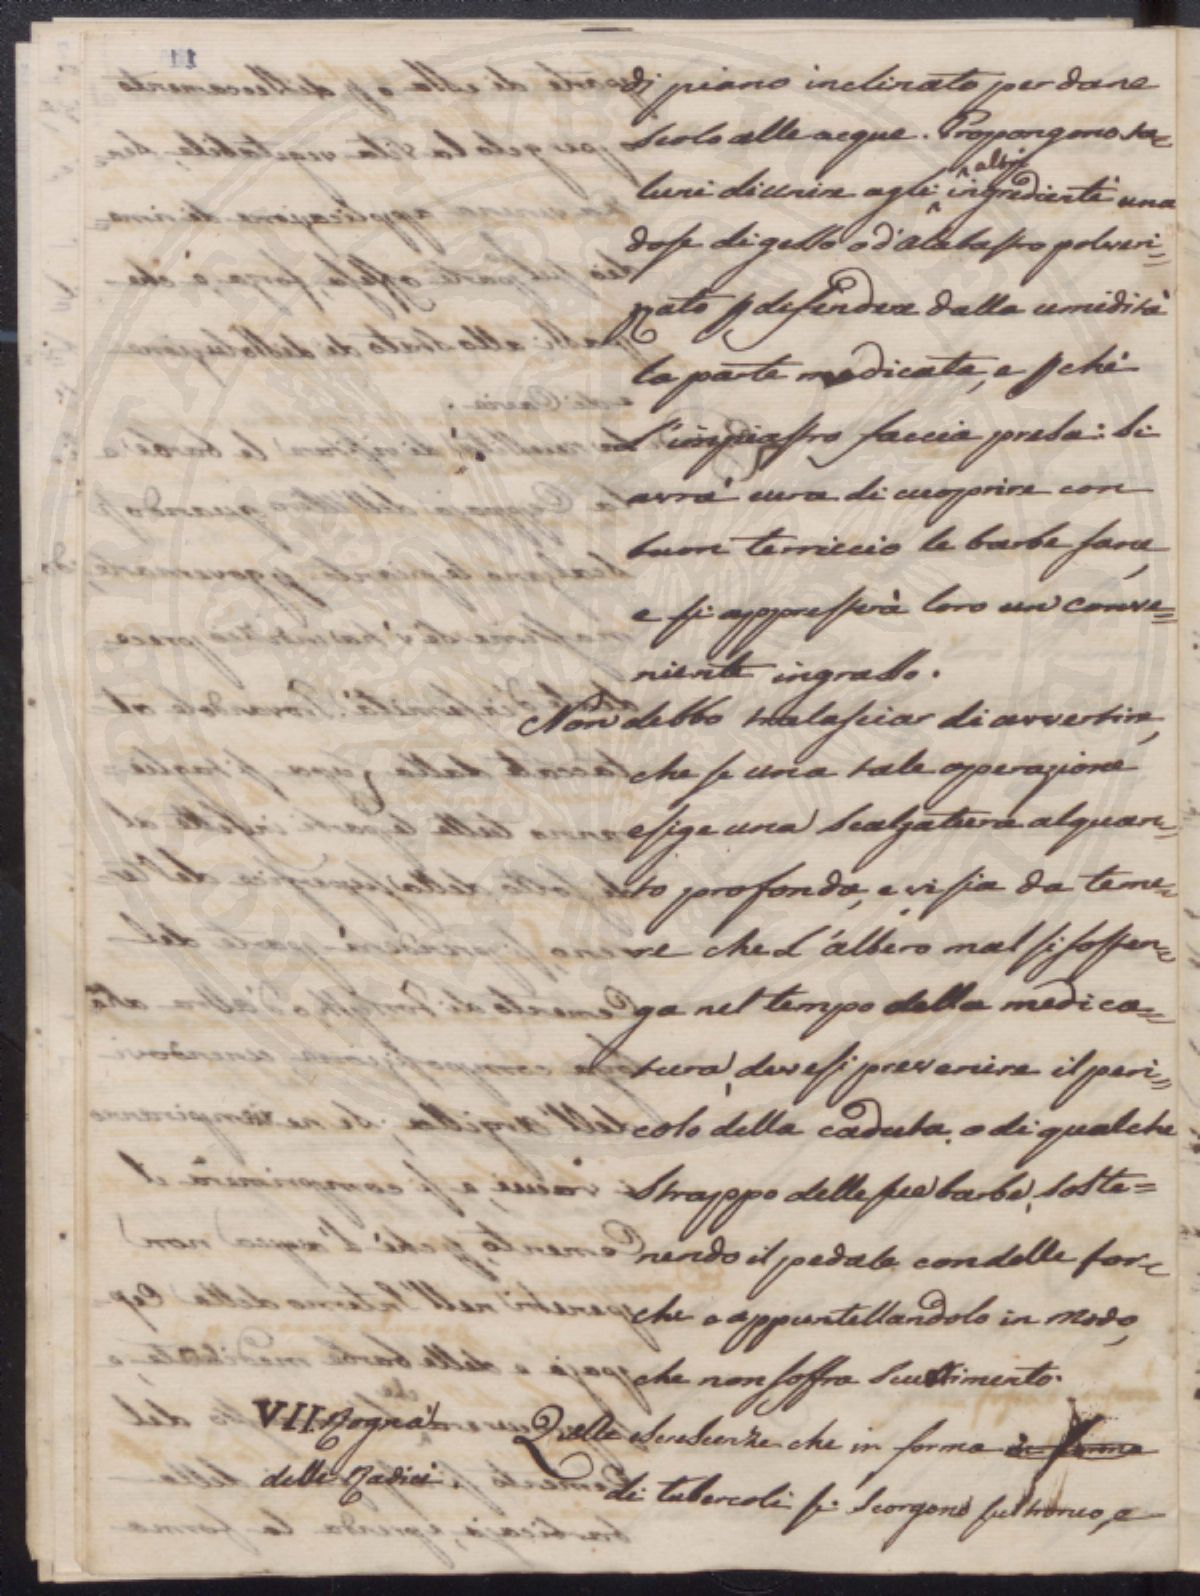 di piano inclinato per dare
scolo alle acque. Propongono ta=
luni di unire agli ^altri ingredienti una
dose di gesso o d'alabastro polveri=
zato p difendere dalla umidità
la parte medicata, e p chè
l'impiastro faccia presa: Si
avrà cura di cuoprire con
buon terriccio le barbe sane,
e si appresterà loro un conve=
niente ingrasso.
Non debbo tralasciar di avvertire,
che se una tale operazione
esige una scalzatura alquan=
to profonda, e vi sia da teme=
re che l'albero mal si sosten=
ga nel tempo della medica=
tura, devesi prevenire il peri=
colo della caduta, o di qualche
strappo delle sue barbe, soste=
nendo il pedale con delle for=
che o appuntellandolo in modo,
che non soffra scuotimento.
VII. Rogna
delle Radici.
Quelle escrescenze che in forma in forma
di tubercoli si scorgono sul tronco, e